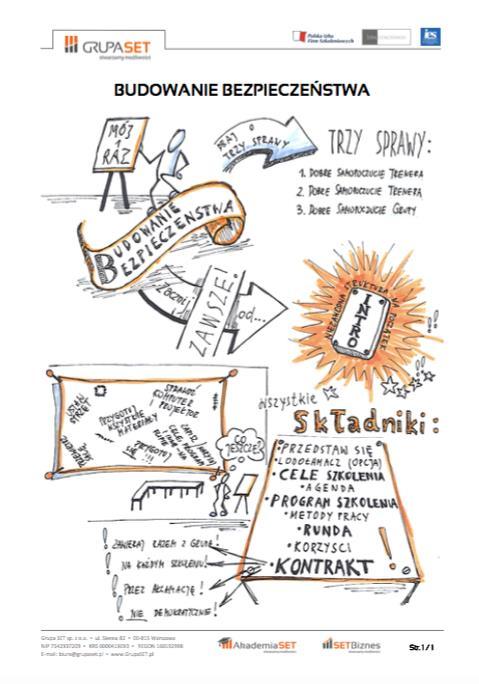 GRUPASET
stwarzamy możliwości
Polska Izba
Firm Szkoleniowych
BUDOWANIE BEZPIECZEŃSTWA
MÓJ
1
RAZ
DBAJ O
TRZY SPRAWY
TRZY SPRAWY:
1. DOBRE SAMOPOCZUCIE TRENERA
2. DOBRE SAMOPOCZUCIE TRENERA
3. DOBRE SAMOPOCZUCIE GRUPY
BUDOWANIE
BEZPIECZEŃSTWA
ZACZNIJ
ZAWSZE!
od...
STRUKTURA NA POCZĄTEK
INTRO
SPRAWDŹ
KOMPUTER
I PROJEKTOR
PRZYGOTUJ
WSZYSTKIE
MATERIAŁY
CO
JESZCZE?
wszystkie
Składniki:
• PRZEDSTAW SIĘ
• LODOŁAMACZ (OPCJA)
• CELE SZKOLENIA
• AGENDA
• PROGRAM SZKOLENIA
• METODY PRACY
• RUNDA
• KORZYŚCI
• KONTRAKT !
! ZAWIERAJ RAZEM Z GRUPĄ!
! NA KAŻDYM SZKOLENIU!
! PRZEZ AKLAMACJĘ!
! NIE DEMOKRATYCZNIE!
Grupa SET sp. z o.o. • ul. Sienna 82 • 00-815 Warszawa
E-mail: biuro@grupaset.pl • www.GrupaSET.pl
AkademiaSET
SETBiznes
Str. 1 / 1